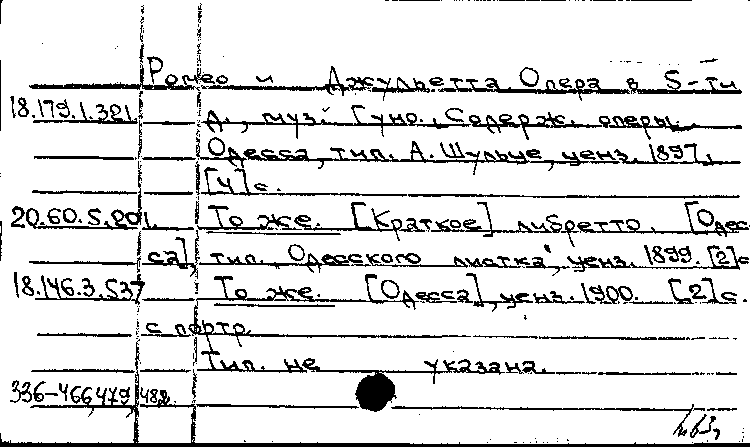 Ромео и Джульетта Опера в 5-ти
18.179.1.321. д., муз. Гуно. Содерж. оперы.
Одесса, тип. А. Шульце, ценз. 1897,
[4] с.
20.60.5.201. То же. [Краткое] либретто. [Одес-
са], тип. "Одесского листка", ценз. 1899. [2] с
18.146.3.537 То же. [Одесса], ценз. 1900. [2] с.
с портр.
Тип. не указана.
336-466,479,482.